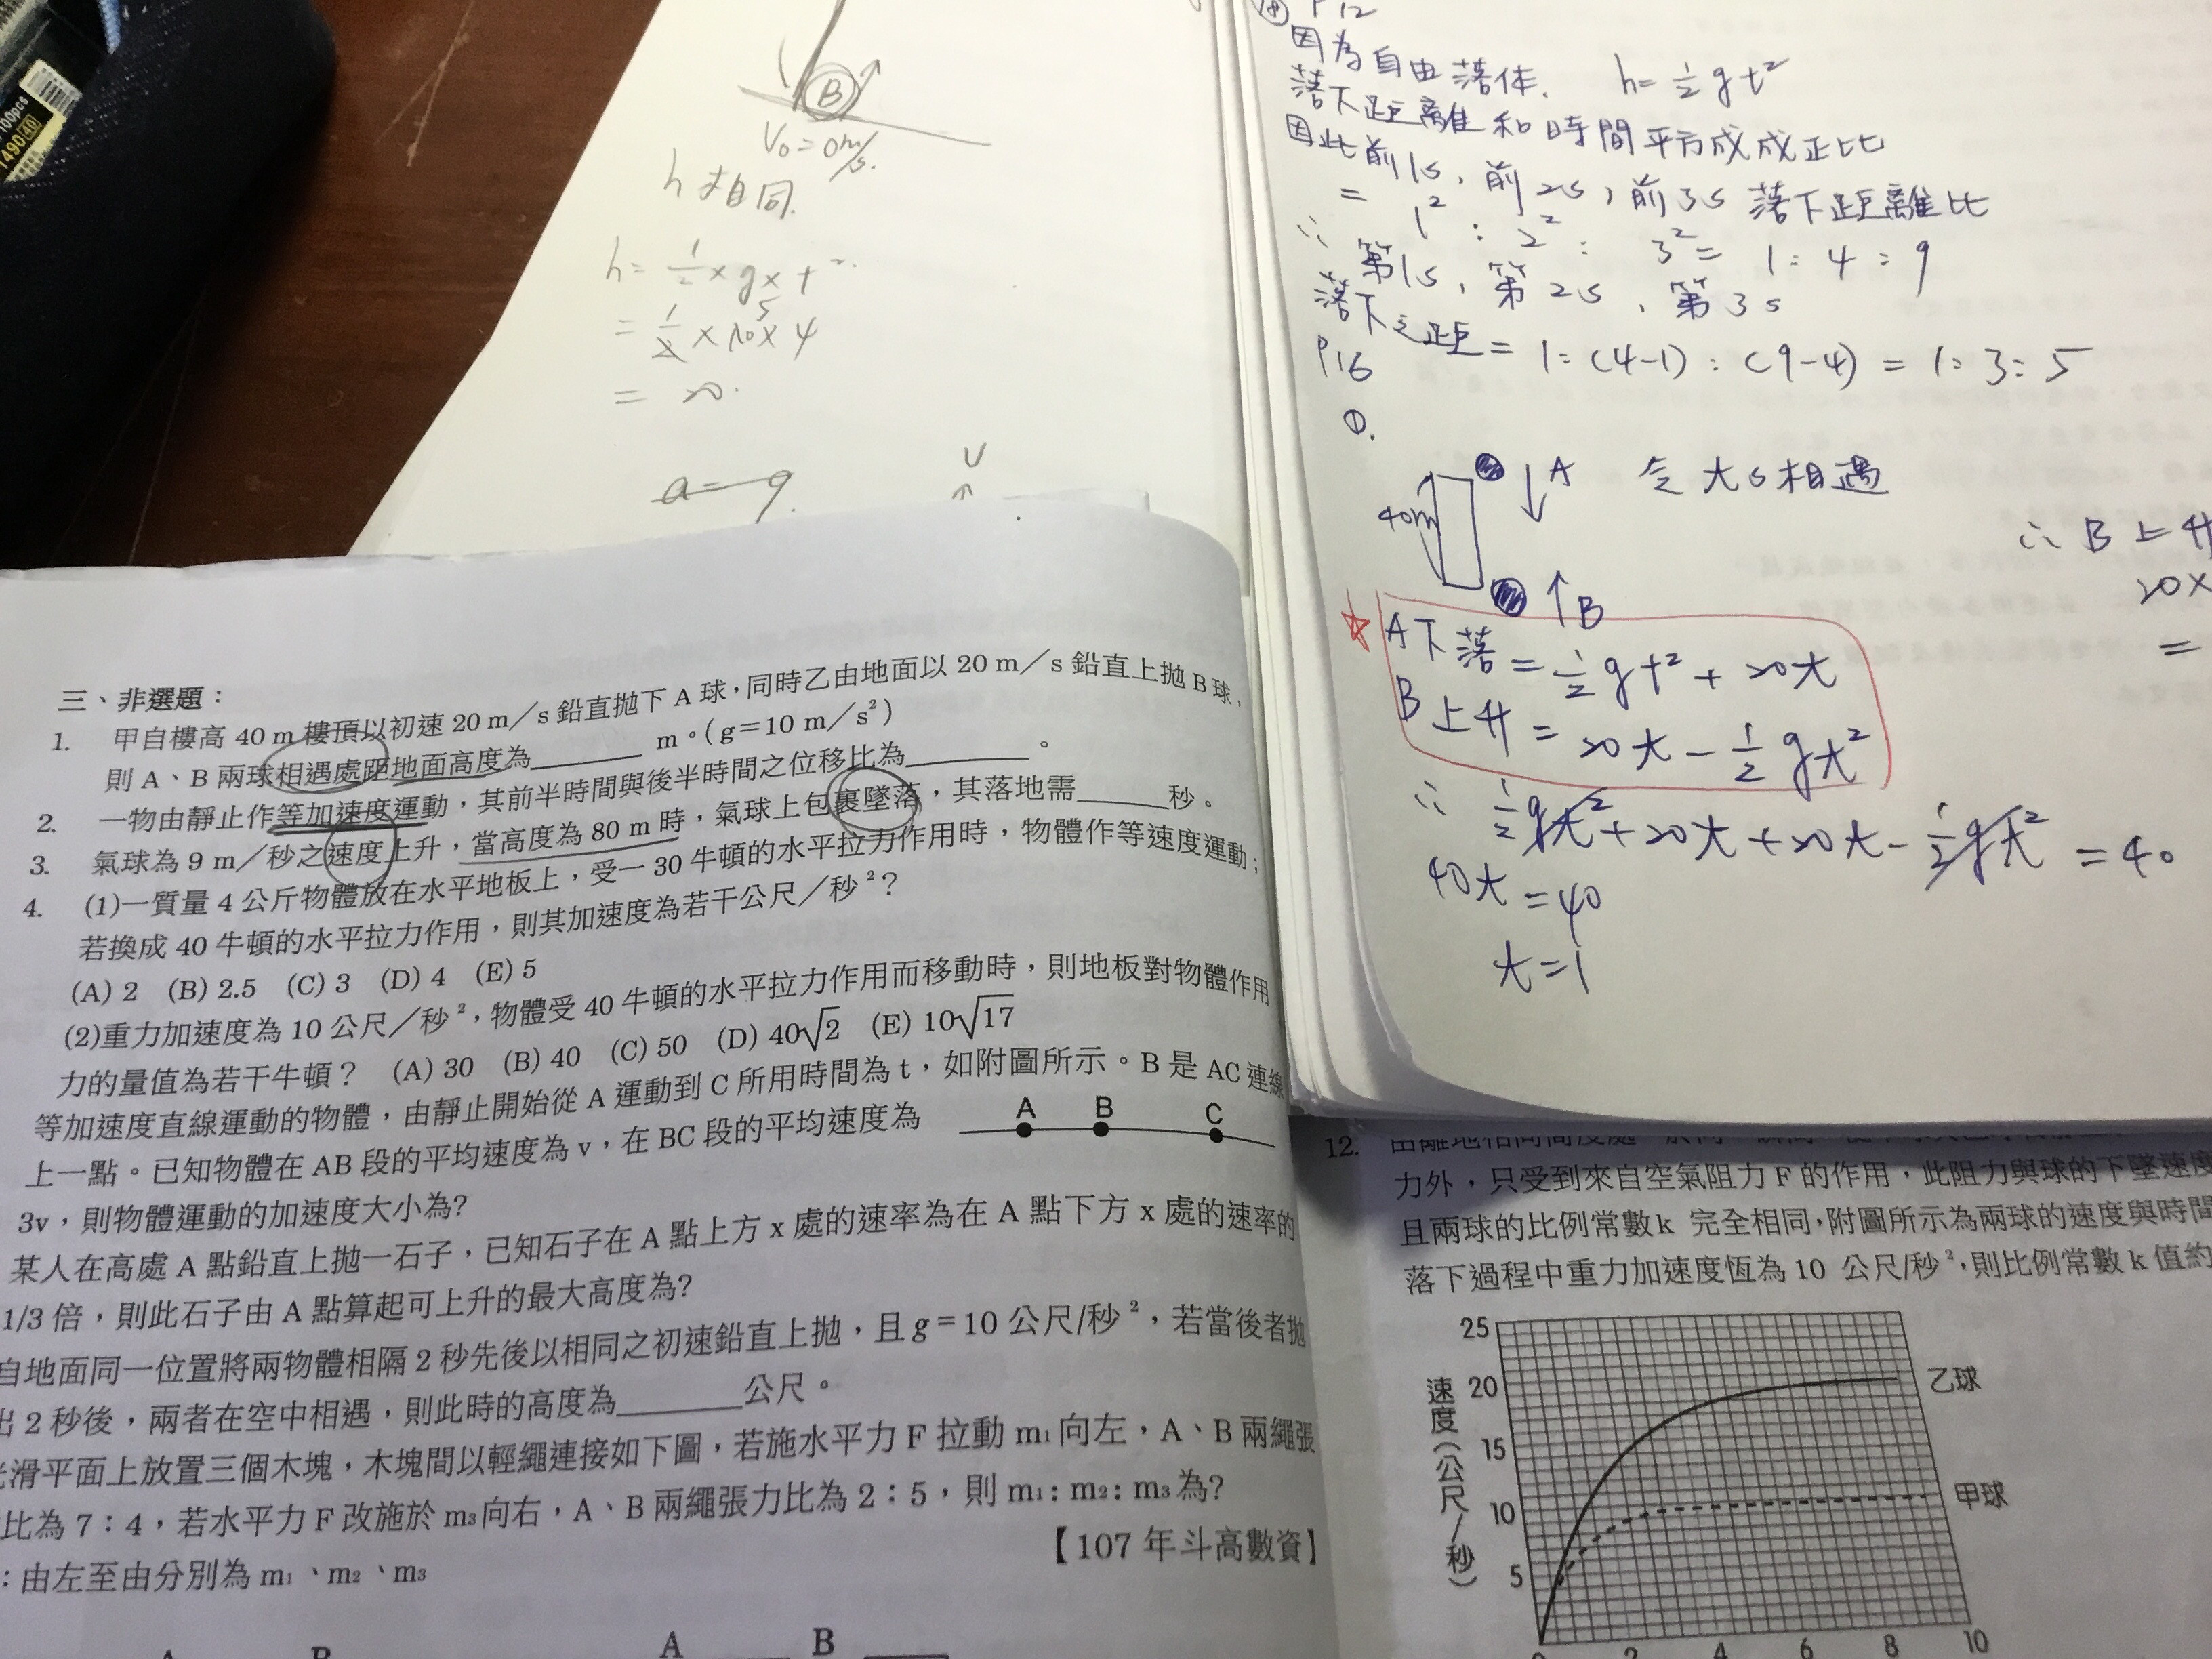 100pcs
1490(40)
B
V₀=0m/s.
h 相同.
h= 1/2 ×g× t².
= 1/2 ×10× 4
5
= 20.
a= 9.
V
⑱ P12
因為自由落体. h= 1/2 g t²
落下距離和時間平方成成正比
因此前1s, 前2s, 前3s 落下距離比
= 1² : 2² : 3² = 1 : 4 : 9
∴ 第1s, 第2s, 第3s
落下之距 = 1:(4-1):(9-4) = 1:3:5
P16
①.
40m
A
令 t s 相遇
B
∴ B 上升
20×
=
A下落 = 1/2 g t² + 20t
B上升 = 20t - 1/2 g t²
∴ 1/2 g t² + 20t + 20t - 1/2 g t² = 40
40t = 40
t = 1
三、非選題：
1. 甲自樓高 40 m 樓頂以初速 20 m／s 鉛直拋下 A 球，同時乙由地面以 20 m／s 鉛直上拋 B 球，
則 A、B 兩球相遇處距地面高度為______ m。(g＝10 m／s²)
2. 一物由靜止作等加速度運動，其前半時間與後半時間之位移比為______。
3. 氣球為 9 m／秒之速度上升，當高度為 80 m 時，氣球上包裹墜落，其落地需______秒。
4. (1)一質量 4 公斤物體放在水平地板上，受一 30 牛頓的水平拉力作用時，物體作等速度運動；
若換成 40 牛頓的水平拉力作用，則其加速度為若干公尺／秒²？
(A) 2 (B) 2.5 (C) 3 (D) 4 (E) 5
(2)重力加速度為 10 公尺／秒²，物體受 40 牛頓的水平拉力作用而移動時，則地板對物體作用
力的量值為若干牛頓？ (A) 30 (B) 40 (C) 50 (D) 40√2 (E) 10√17
等加速度直線運動的物體，由靜止開始從 A 運動到 C 所用時間為 t，如附圖所示。B 是 AC 連線
上一點。已知物體在 AB 段的平均速度為 v，在 BC 段的平均速度為
3v，則物體運動的加速度大小為?
A B C
某人在高處 A 點鉛直上拋一石子，已知石子在 A 點上方 x 處的速率為在 A 點下方 x 處的速率的
1/3 倍，則此石子由 A 點算起可上升的最大高度為?
自地面同一位置將兩物體相隔 2 秒先後以相同之初速鉛直上拋，且 g＝10 公尺/秒²，若當後者拋
出 2 秒後，兩者在空中相遇，則此時的高度為______公尺。
滑平面上放置三個木塊，木塊間以輕繩連接如下圖，若施水平力 F 拉動 m₁ 向左，A、B 兩繩張
比為 7：4，若水平力 F 改施於 m₃ 向右，A、B 兩繩張力比為 2：5，則 m₁：m₂：m₃ 為?
【107 年斗高數資】
：由左至由分別為 m₁、m₂、m₃
A B A B
12.
力外，只受到來自空氣阻力 F 的作用，此阻力與球的下墜速度
且兩球的比例常數 k 完全相同，附圖所示為兩球的速度與時間
落下過程中重力加速度恆為 10 公尺/秒²，則比例常數 k 值約
速度（公尺／秒）
25
20
15
10
5
0 2 4 6 8 10
乙球
甲球